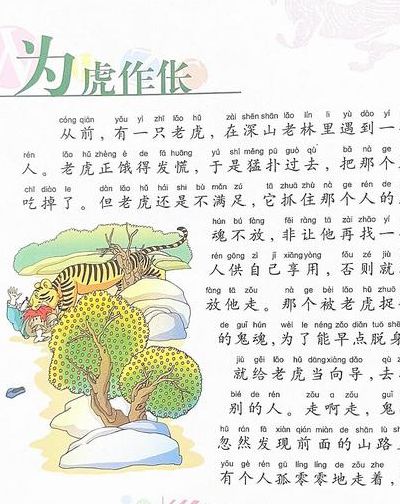 为虎作伥
cóng qián yǒu yì zhī lǎo hǔ zài shēn shān lǎo lín lǐ yù dào yí
从前，有一只老虎，在深山老林里遇到一
rén lǎo hǔ zhèng è de fā huāng yú shì měng pū guò qù bǎ nà ge
人。老虎正饿得发慌，于是猛扑过去，把那个
chī diào le dàn lǎo hǔ hái shi bù mǎn zú tā zhuā zhù nà ge rén de
吃掉了。但老虎还是不满足，它抓住那个人的
hún bú fàng fēi ràng tā zài zhǎo yí
魂不放，非让他再找一
rén gōng zì jǐ xiǎng yòng fǒu zé jiù
人供自己享用，否则就
fàng tā zǒu nà ge bèi lǎo hǔ zhuō
放他走。那个被老虎捉
de guǐ hún wèi le néng zǎo diǎn tuō shēn
的鬼魂，为了能早点脱身
jiù gěi lǎo hǔ dāng xiàng dǎo qù
就给老虎当向导，去
bié de rén zǒu a zǒu guǐ
别的人。走啊走，鬼
hū rán fā xiàn qián miàn de shān lù
忽然发现前面的山路
yǒu gè rén gū líng líng de zǒu zhe
有个人孤零零地走着，